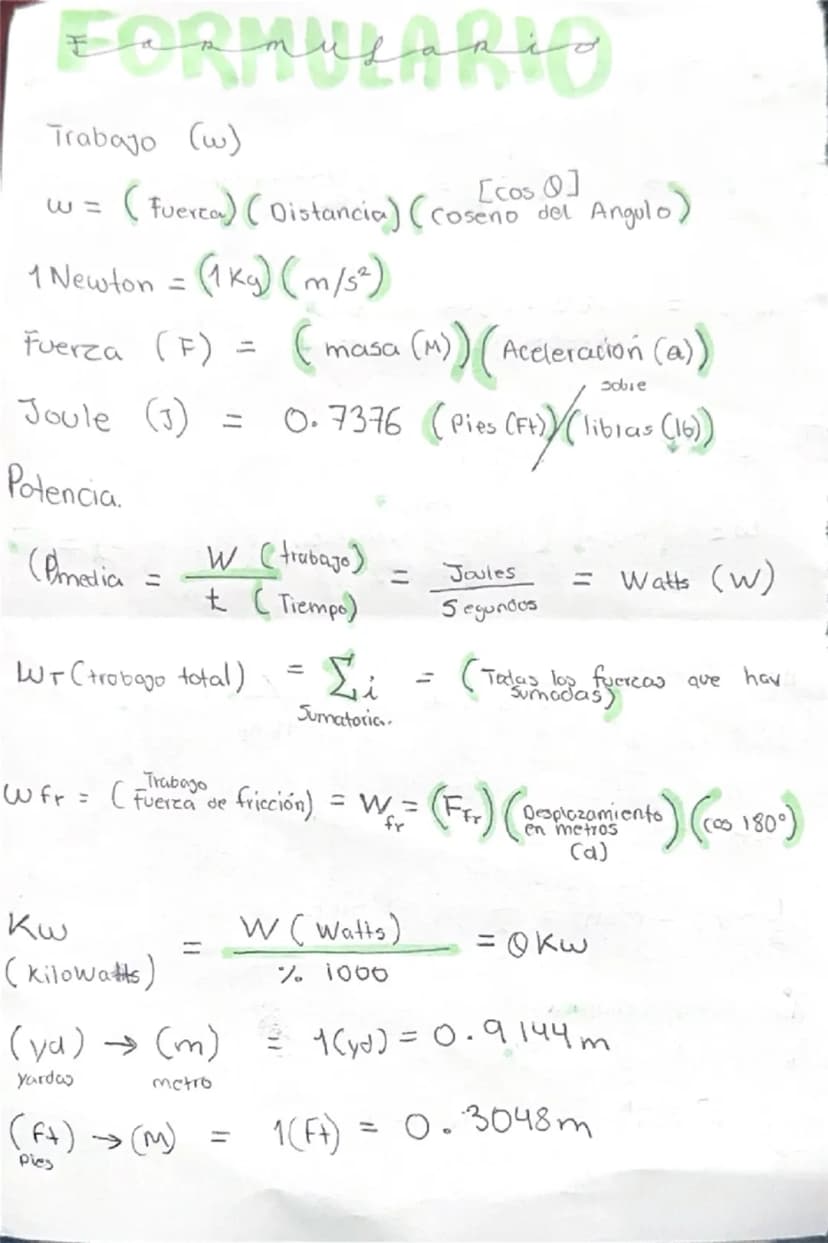 FORMULARIO
Formulario
Trabajo (w)
w = (fuerza) (Distancia) (coseno del Angulo) [cos θ]
1 Newton = (1 Kg) (m/s²)
Fuerza (F) = (masa (M)) (Aceleración (a))
Joule (J) = 0.7376 (Pies (Ft)) / sobre (libras (lb))
Potencia.
(Pmedia = W (trabajo) / t (Tiempo) = Joules / Segundos = Watts (W)
WT (trabajo total) = Σi Sumatoria. = (Todas las fuerzas que hay sumadas)
Wfr = (Trabajo fuerza de fricción) = Wfr = (Ffr) (Desplazamiento en metros (d)) (cos 180°)
Kw (Kilowatts) = W (Watts) / % 1000 = θ Kw
(yd) yardas → (m) metro = 1(yd) = 0.9144 m
(ft) pies → (M) = 1(Ft) = 0.3048 m